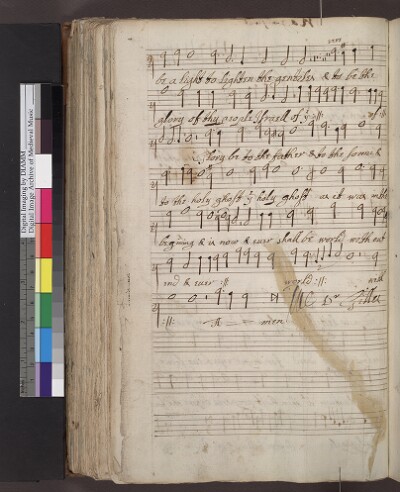 be a light to lighten the gentiles & to be the
glory of thy people Israell of :||:
Glory be to the father & to the sonne &
to the holy ghost holy ghost as it was in the
beginning & is now & ever shall be world without
end & ever :||: world :||:
:||: A men
Digital Imaging by DIAMM
Digital Image Archive of Medieval Music